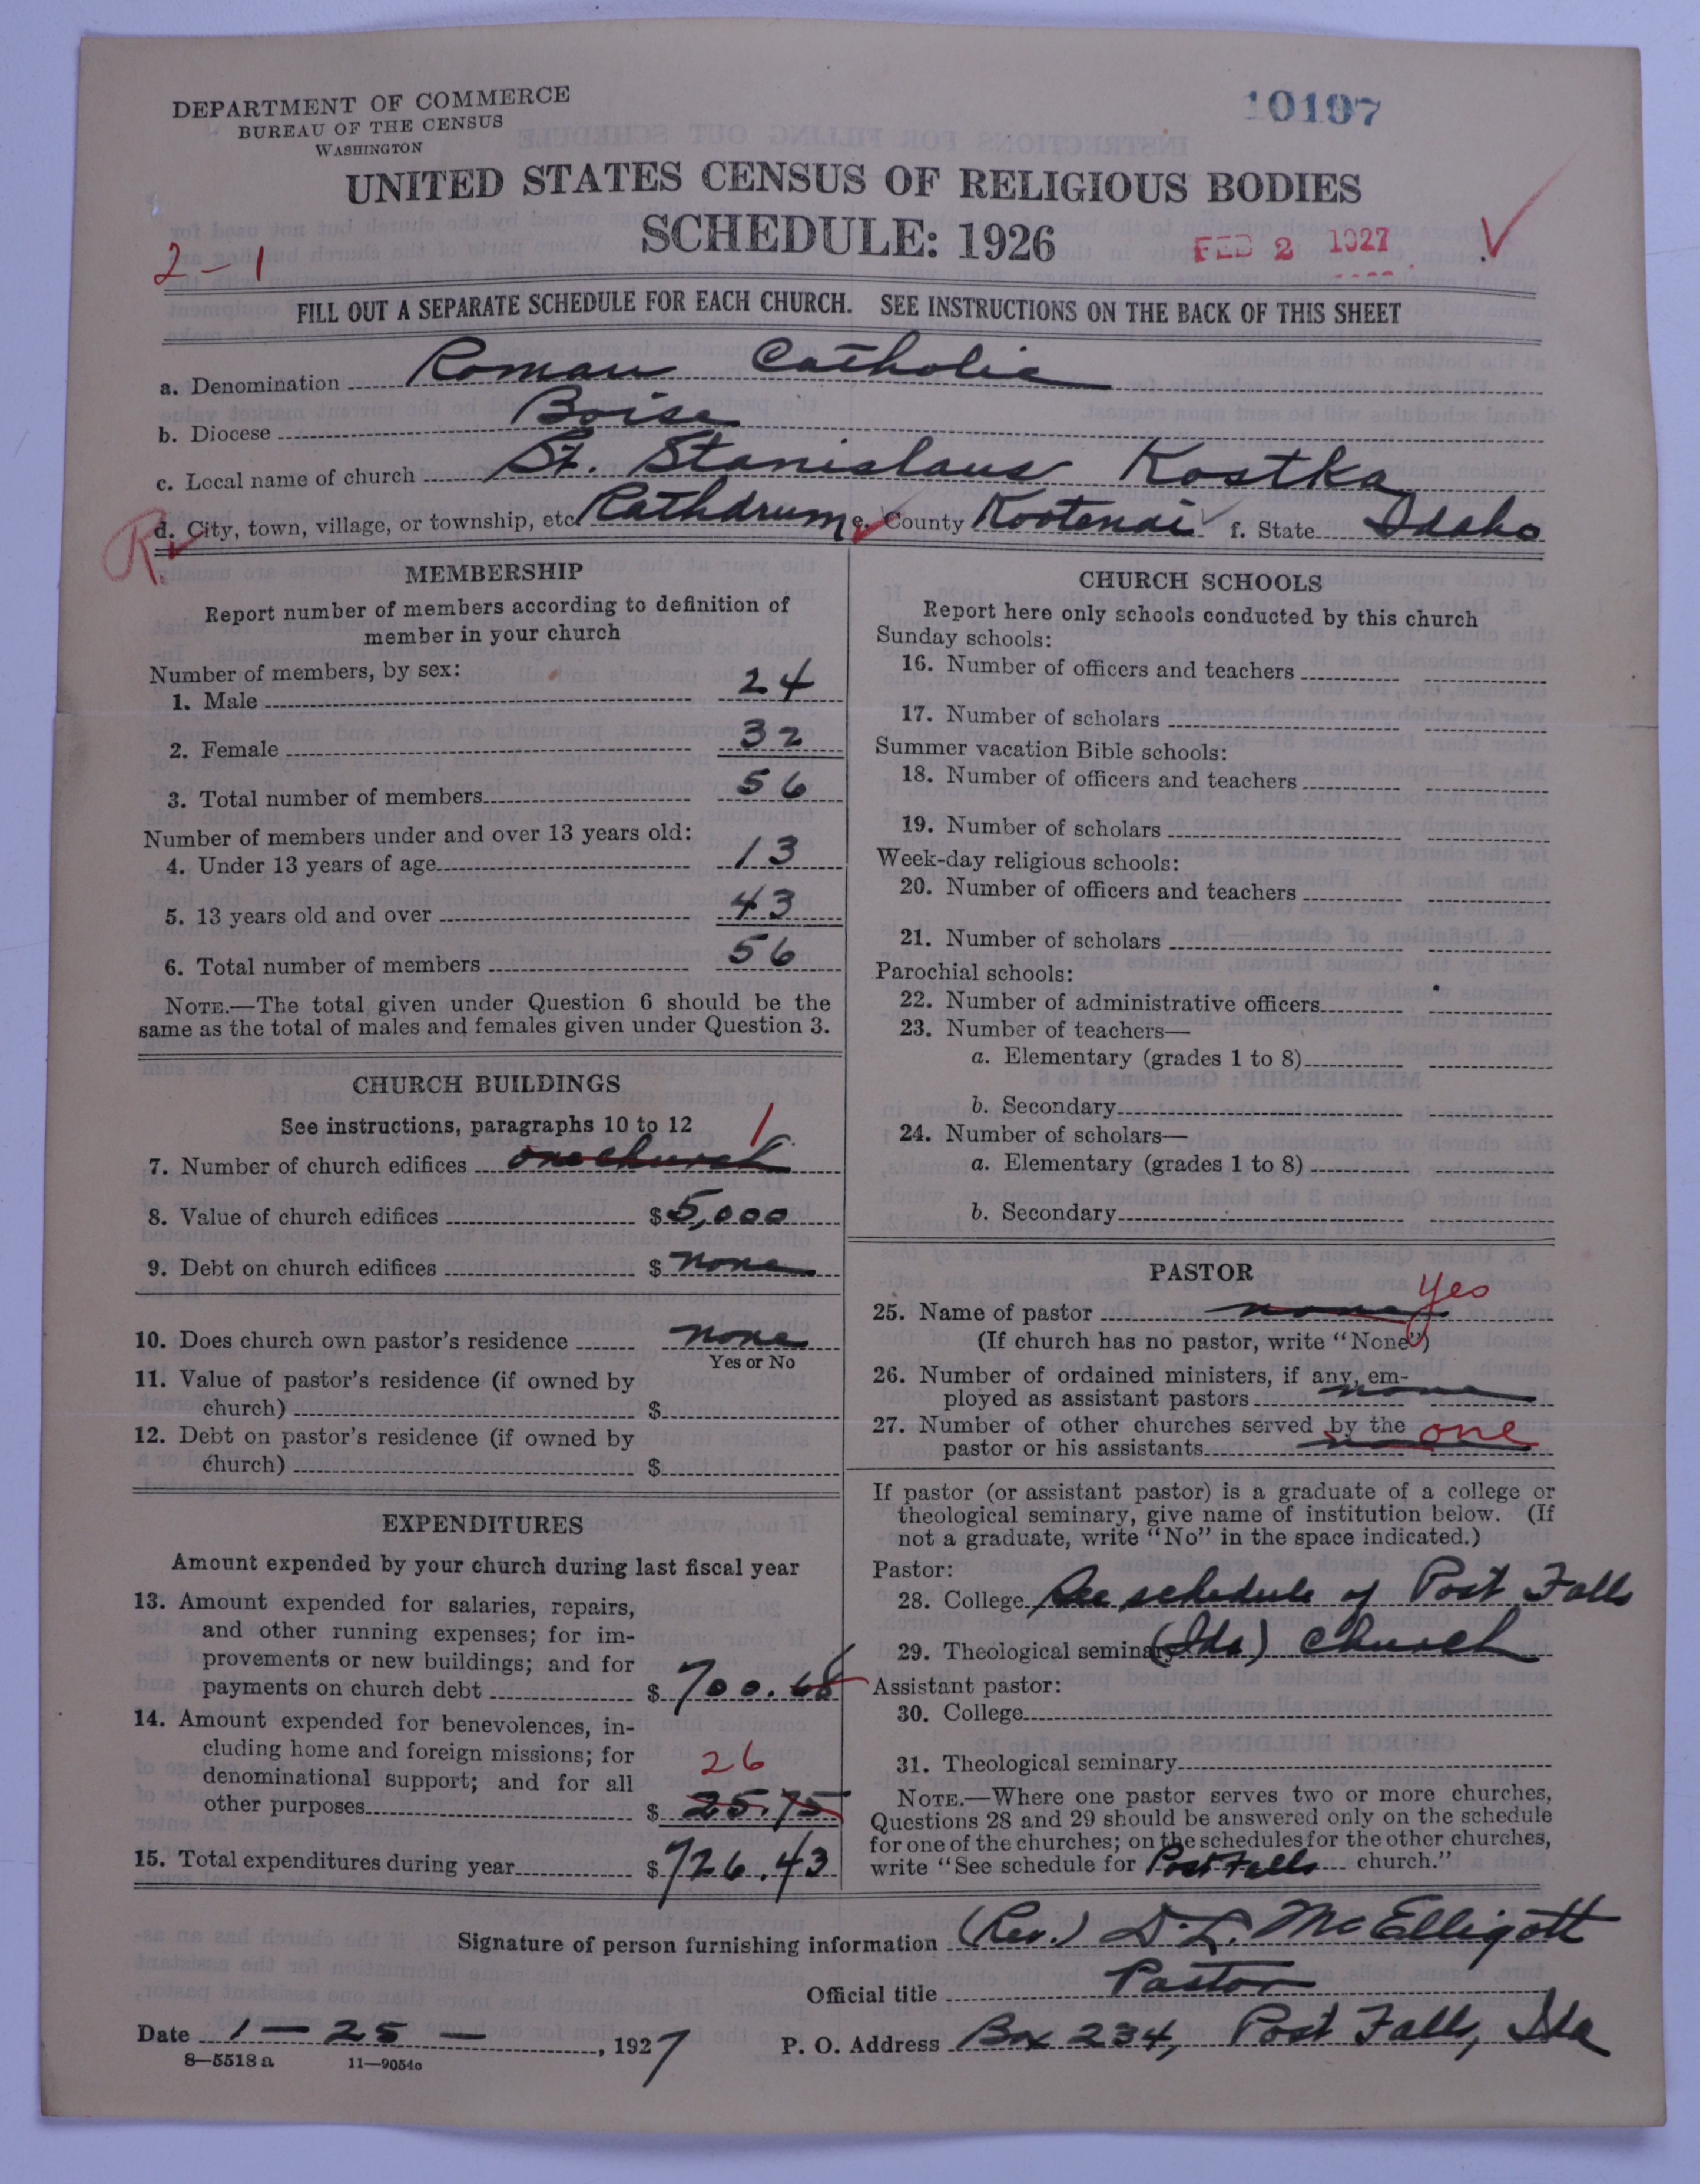 DEPARTMENT OF COMMERCE
BUREAU OF THE CENSUS
WASHINGTON
10197
UNITED STATES CENSUS OF RELIGIOUS BODIES
SCHEDULE: 1926
FEB 2 1927
2-1
FILL OUT A SEPARATE SCHEDULE FOR EACH CHURCH. SEE INSTRUCTIONS ON THE BACK OF THIS SHEET
a. Denomination Roman Catholic
b. Diocese Boise
c. Local name of church St. Stanislaus Kostka
R d. City, town, village, or township, etc. Rathdrum e. County Kootenai f. State Idaho
MEMBERSHIP
Report number of members according to definition of
member in your church
Number of members, by sex:
1. Male 24
2. Female 32
3. Total number of members 56
Number of members under and over 13 years old:
4. Under 13 years of age 13
5. 13 years old and over 43
6. Total number of members 56
NOTE.—The total given under Question 6 should be the
same as the total of males and females given under Question 3.
CHURCH BUILDINGS
See instructions, paragraphs 10 to 12
1
7. Number of church edifices one church
8. Value of church edifices $ 5,000
9. Debt on church edifices $ none
10. Does church own pastor's residence none
Yes or No
11. Value of pastor's residence (if owned by
church) $
12. Debt on pastor's residence (if owned by
church) $
EXPENDITURES
Amount expended by your church during last fiscal year
13. Amount expended for salaries, repairs,
and other running expenses; for im-
provements or new buildings; and for
payments on church debt $ 700.68
14. Amount expended for benevolences, in-
cluding home and foreign missions; for
denominational support; and for all
26
other purposes $ 25.75
15. Total expenditures during year $ 726.43
CHURCH SCHOOLS
Report here only schools conducted by this church
Sunday schools:
16. Number of officers and teachers
17. Number of scholars
Summer vacation Bible schools:
18. Number of officers and teachers
19. Number of scholars
Week-day religious schools:
20. Number of officers and teachers
21. Number of scholars
Parochial schools:
22. Number of administrative officers
23. Number of teachers—
a. Elementary (grades 1 to 8)
b. Secondary
24. Number of scholars—
a. Elementary (grades 1 to 8)
b. Secondary
PASTOR
Yes
25. Name of pastor none
(If church has no pastor, write "None")
26. Number of ordained ministers, if any, em-
ployed as assistant pastors none
27. Number of other churches served by the one
pastor or his assistants
If pastor (or assistant pastor) is a graduate of a college or
theological seminary, give name of institution below. (If
not a graduate, write "No" in the space indicated.)
Pastor:
28. College See schedule of Post Falls
29. Theological seminary (Ida) Church
Assistant pastor:
30. College
31. Theological seminary
NOTE.—Where one pastor serves two or more churches,
Questions 28 and 29 should be answered only on the schedule
for one of the churches; on the schedules for the other churches,
write "See schedule for Post Falls church."
Signature of person furnishing information (Rev.) D. L. McElligott
Official title Pastor
Date 1-25-, 1927 P. O. Address Box 234, Post Falls, Ida
8—5518 a 11—9054a